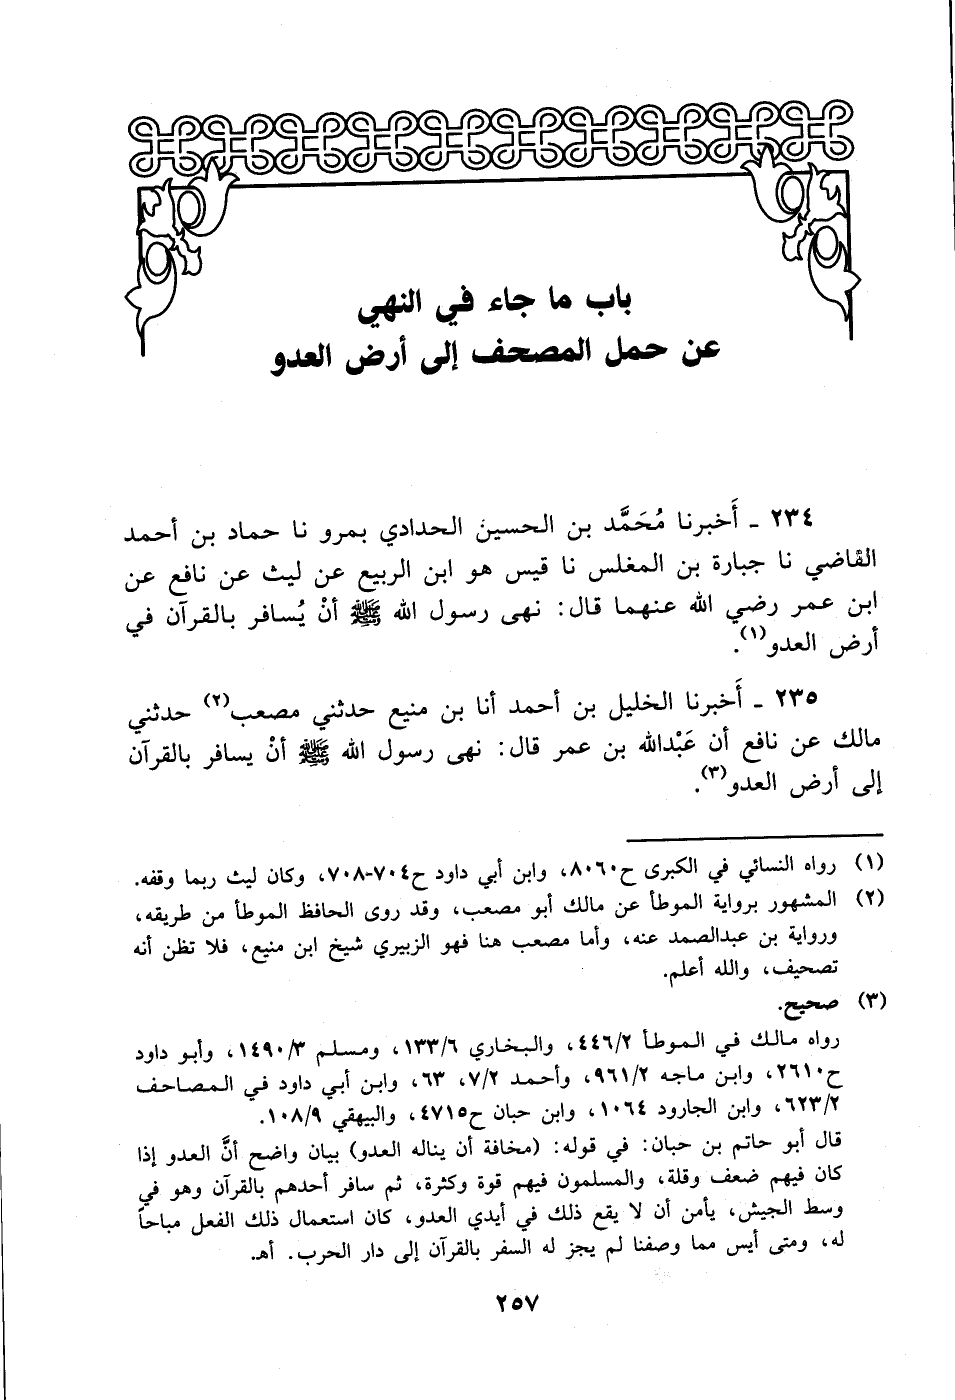 باب ما جاء في النهي
عن حمل المصحف إلى أرض العدو
٢٣٤ ـ أَخبرنا مُحَمَّد بن الحسين الحدادي بمرو نا حماد بن أحمد
القاضي نا جبارة بن المغلس نا قيس هو ابن الربيع عن ليث عن نافع عن
ابن عمر رضي الله عنهما قال: نهى رسول الله ﷺ أنْ يُسافر بالقرآن في
أرض العدو(١).
٢٣٥ ـ أَخبرنا الخليل بن أحمد أنا بن منيع حدثني مصعب(٢) حدثني
مالك عن نافع أن عَبْدالله بن عمر قال: نهى رسول الله ﷺ أنْ يسافر بالقرآن
إلى أرض العدو(٣).
(١) رواه النسائي في الكبرى ح٨٠٦٠، وابن أبي داود ح٧٠٤-٧٠٨، وكان ليث ربما وقفه.
(٢) المشهور برواية الموطأ عن مالك أبو مصعب، وقد روى الحافظ الموطأ من طريقه،
ورواية بن عبدالصمد عنه، وأما مصعب هنا فهو الزبيري شيخ ابن منيع، فلا تظن أنه
تصحيف، والله أعلم.
(٣) صحيح.
رواه مالك في الموطأ ٤٤٦/٢، والبخاري ١٣٣/٦، ومسلم ١٤٩٠/٣، وأبو داود
ح٢٦١٠، وابن ماجه ٩٦١/٢، وأحمد ٧/٢، ٦٣، وابن أبي داود في المصاحف
٦٢٣/٢، وابن الجارود ١٠٦٤، وابن حبان ح٤٧١٥، والبيهقي ١٠٨/٩.
قال أبو حاتم بن حبان: في قوله: (مخافة أن يناله العدو) بيان واضح أنَّ العدو إذا
كان فيهم ضعف وقلة، والمسلمون فيهم قوة وكثرة، ثم سافر أحدهم بالقرآن وهو في
وسط الجيش، يأمن أن لا يقع ذلك في أيدي العدو، كان استعمال ذلك الفعل مباحاً
له، ومتى أيس مما وصفنا لم يجز له السفر بالقرآن إلى دار الحرب. أهـ.
٢٥٧